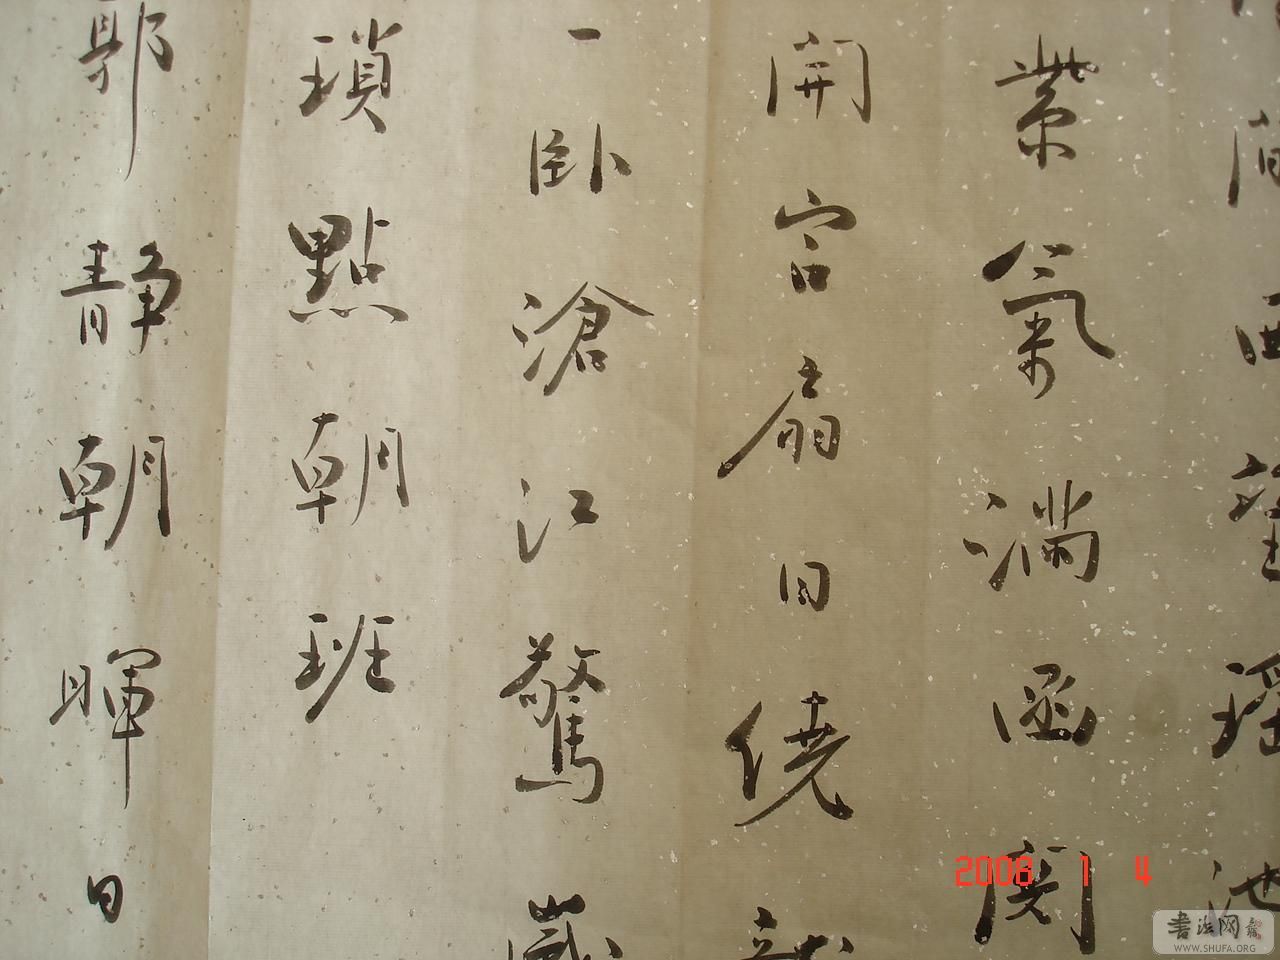 間西望瑤池
紫氣滿函関
開宮扇日繞龍
一臥滄江驚歲
瑣點朝班
郭靜朝暉日
2008 1 4
书法网
WWW.SHUFA.ORG